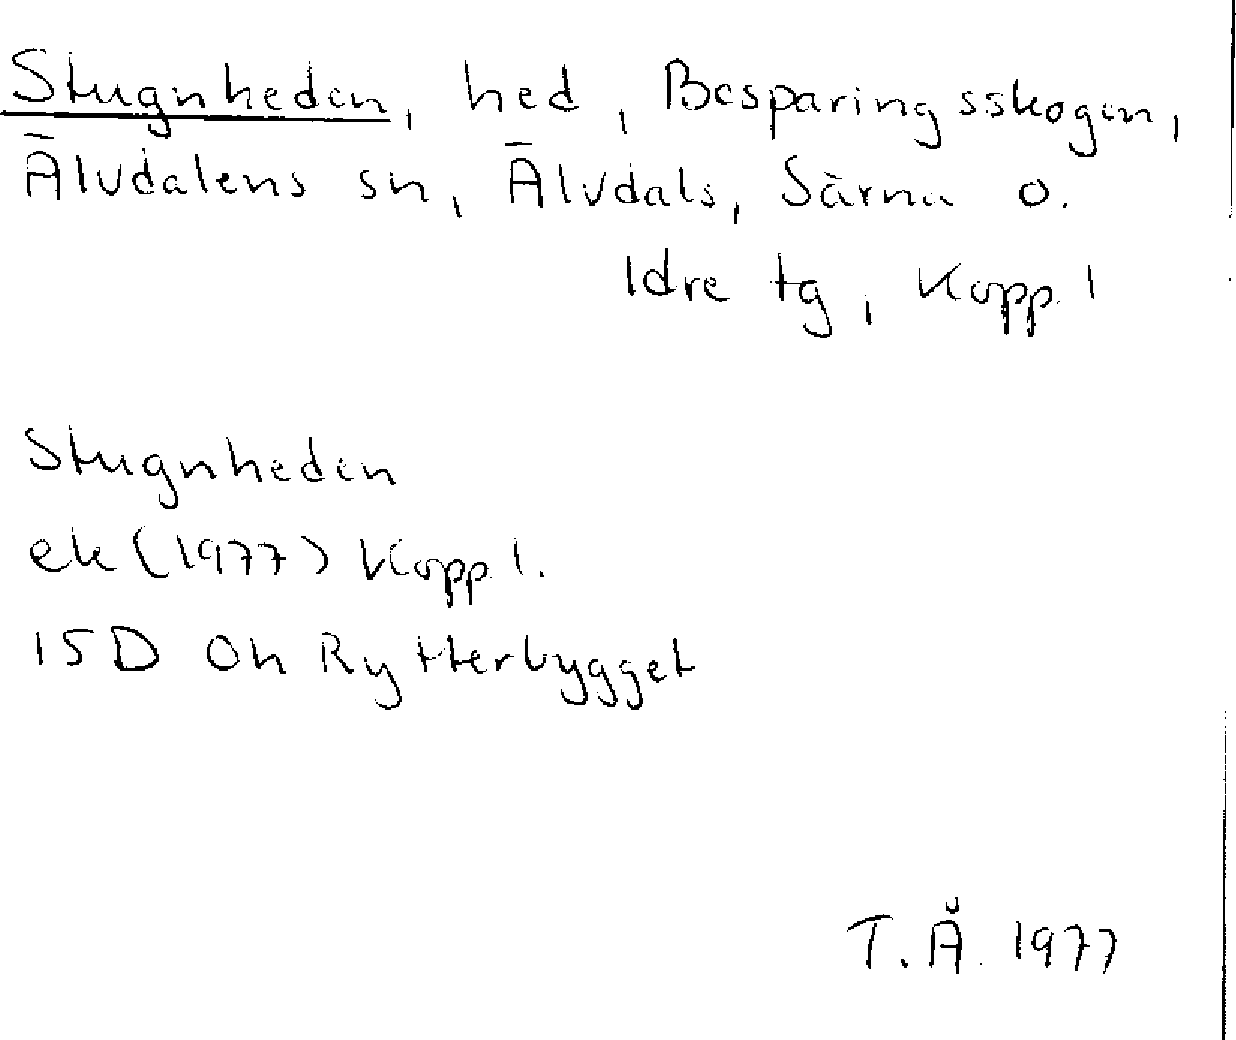 Stugnheden, hed, Besparingsskogen,
Älvdalens sn, Älvdals, Särna o.
Idre tg, Kopp. l
Stugnheden
ek (1977) Kopp. l.
15D Oh Rytterbygget
T. Å. 1977